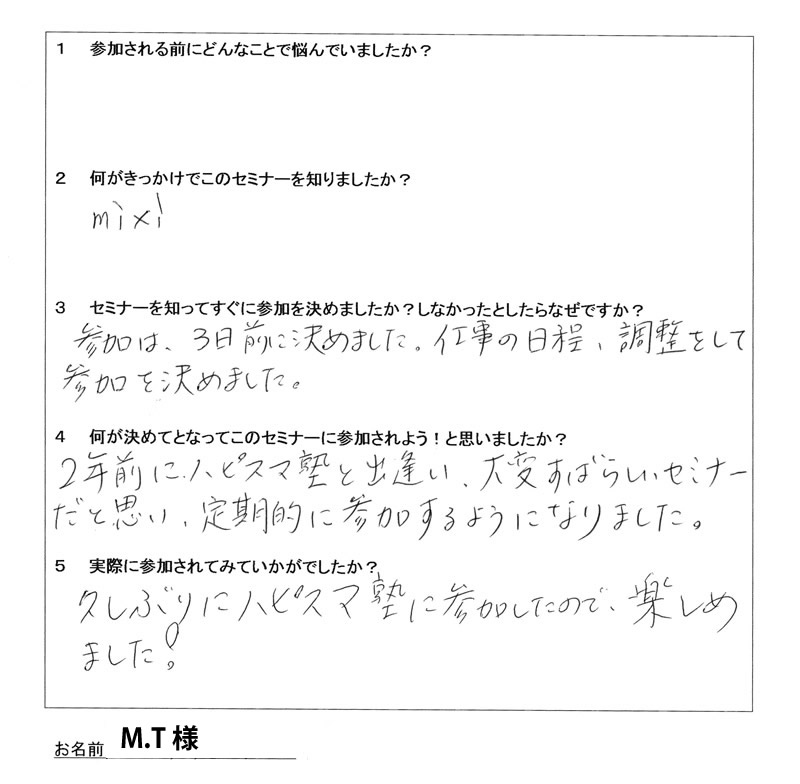 1 参加される前にどんなことで悩んでいましたか？
2 何がきっかけでこのセミナーを知りましたか？
mixi
3 セミナーを知ってすぐに参加を決めましたか？しなかったとしたらなぜですか？
参加は、3日前に決めました。仕事の日程、調整をして
参加を決めました。
4 何が決めてとなってこのセミナーに参加されよう！と思いましたか？
2年前に、ハピスマ塾と出逢い、大変すばらしいセミナー
だと思い、定期的に参加するようになりました。
5 実際に参加されてみていかがでしたか？
久しぶりにハピスマ塾に参加したので、楽しめ
ました！
お名前 M.T 様